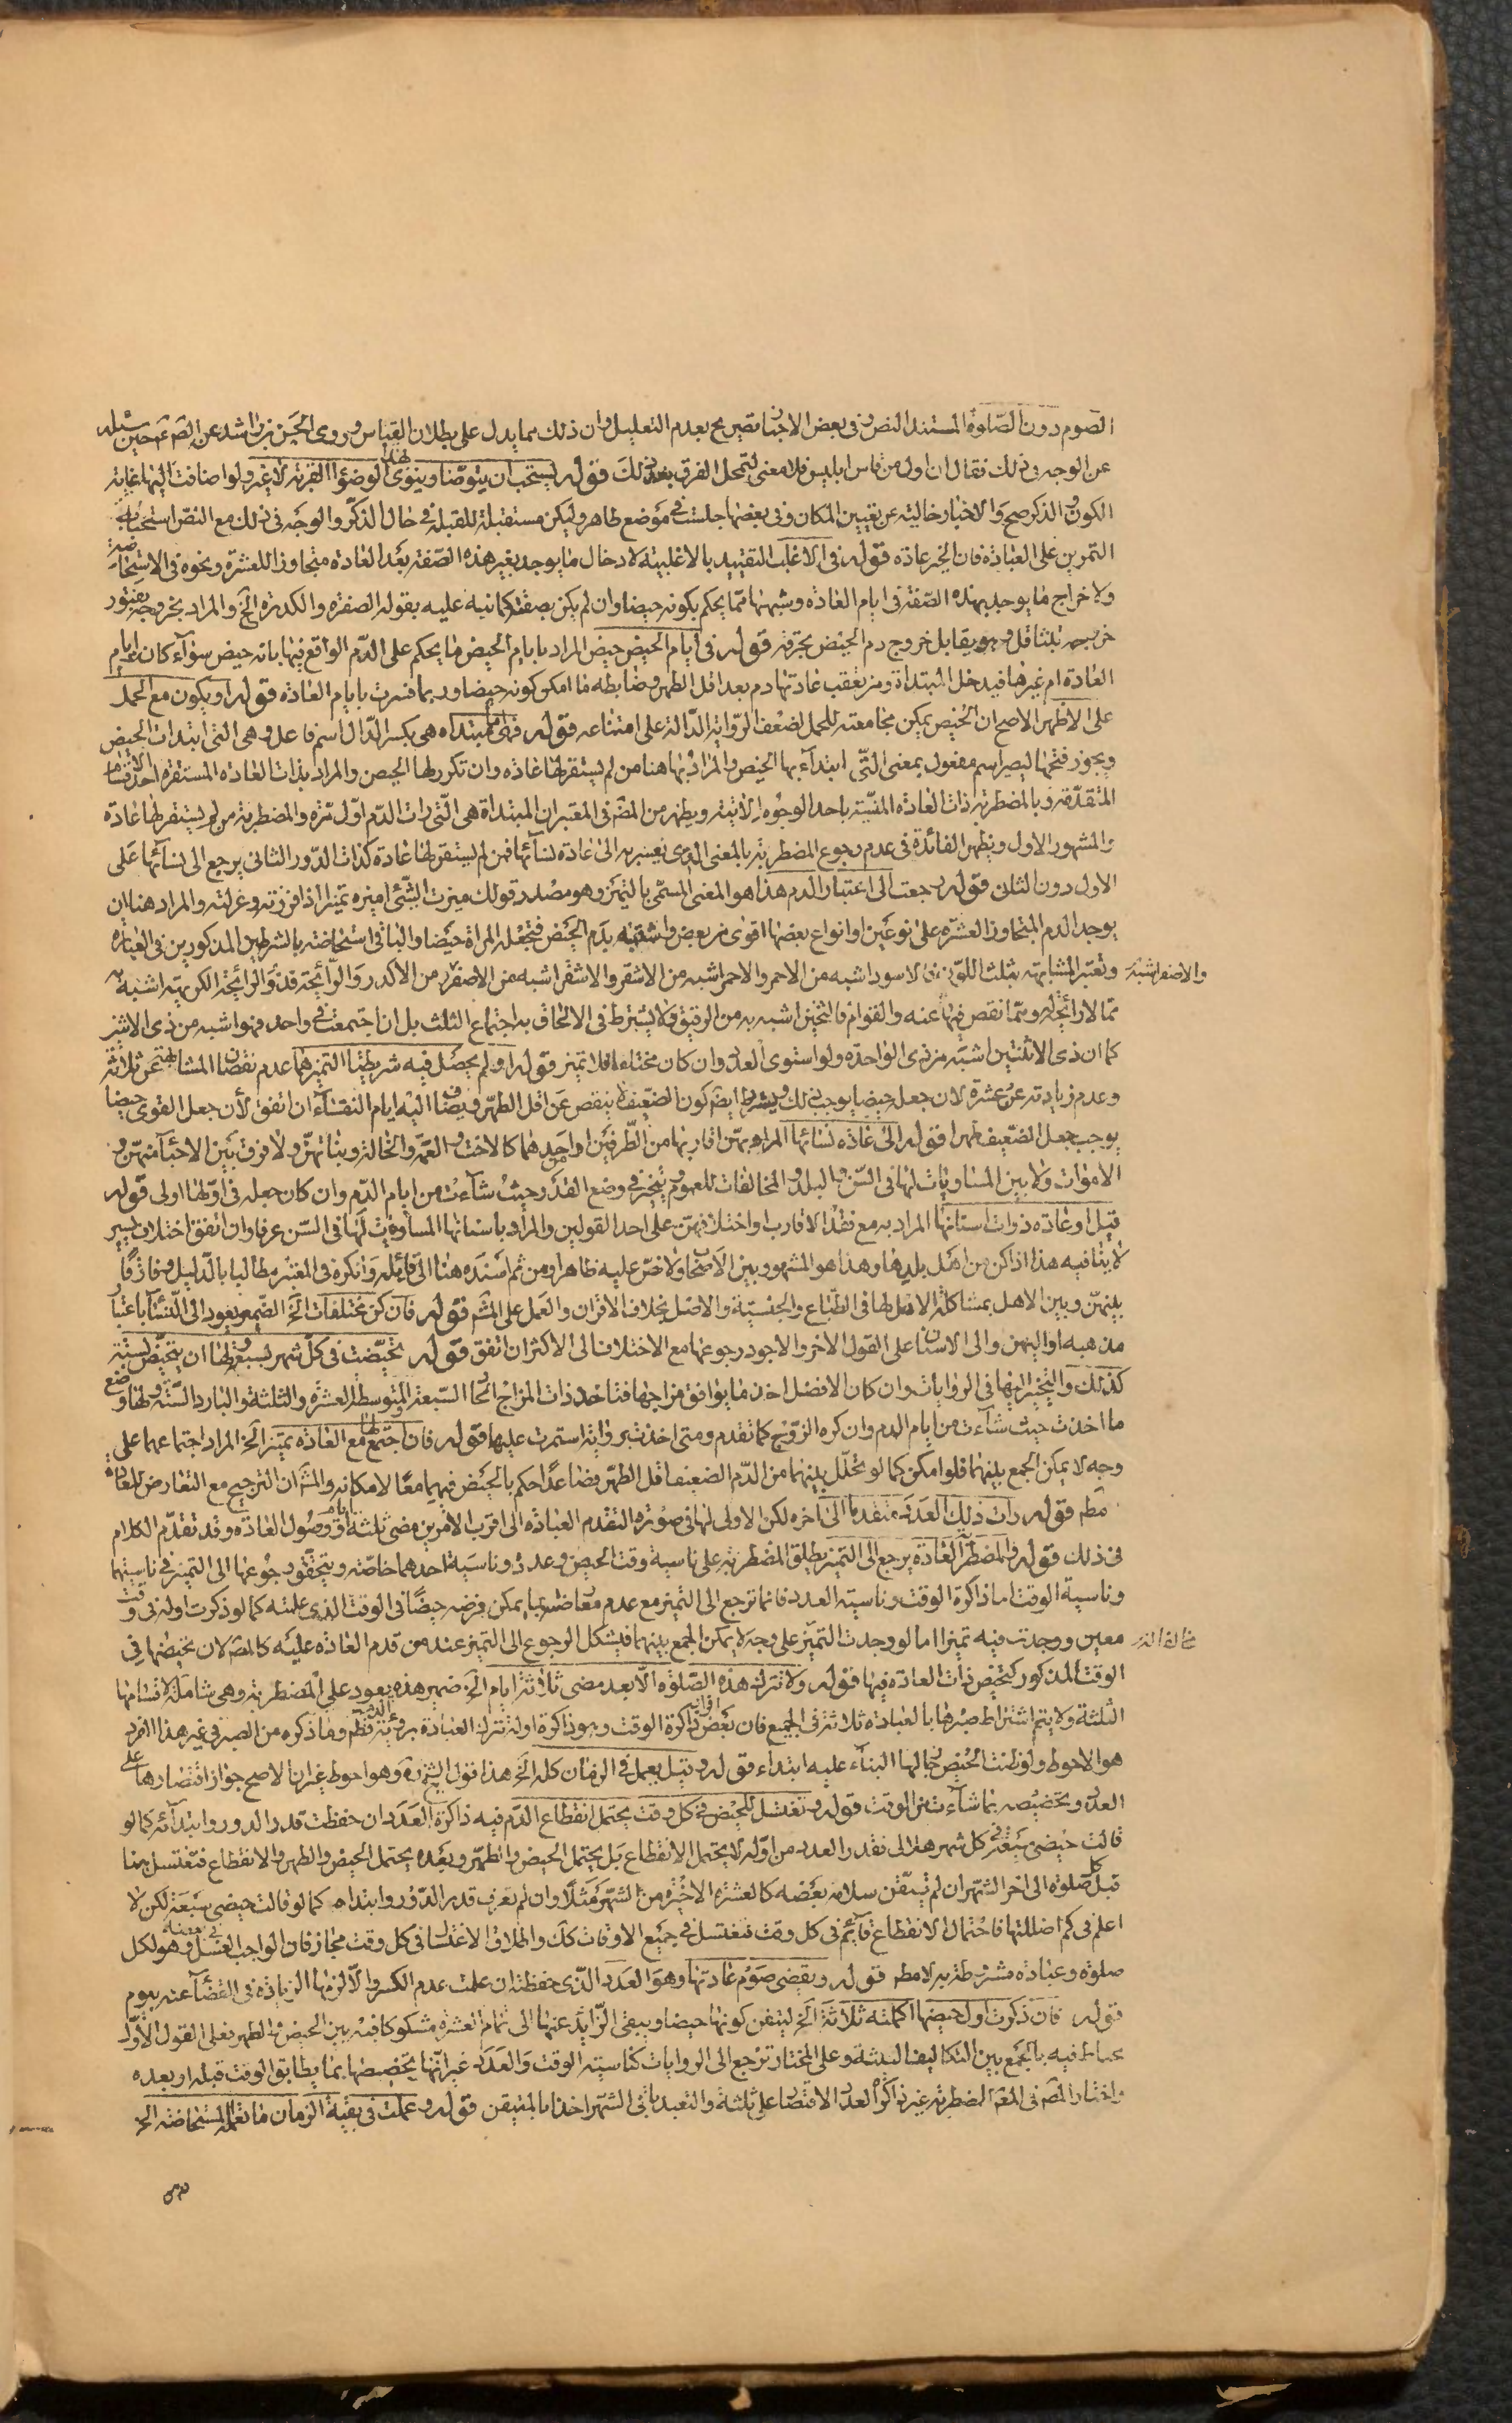 الصوم دون الصلوة المستند النص وفى بعض الاخبار تصريح بعدم التعليل وان ذلك مما يدل على بطلان القياس وروى الحسن بن راشد عن الصم عم حين سئله
عن الوجه فى ذلك فقال ان اول من قاس ابليس فلا معنى لتمحل الفرق بعد ذلك قوله يستحب ان يتوضا وينوى بهذا الوضوء القربة لا غير ولو اضافت اليها غاية
الكون والذكر صح والاخبار خالية عن تعيين المكان وفى بعضها جلست فى موضع طاهر وليكن مستقبلة للقبلة فى حال الذكر والوجه فى ذلك مع النص استحباب
التمرين على العبادة فان الخير عادة قوله فى الاغلب التقييد بالاغلبية لادخال ما يوجد بغير هذه الصفة بعد العادة متجاوزا للعشرة ونحوه فى الاستحاضة
ولاخراج ما يوجد بهذه الصفة فى ايام العادة وشبهها مما يحكم بكونه حيضا وان لم يكن بصفته كما نبه عليه بقوله الصفرة والكدرة الخ والمراد بخروجه بفتور
خروجه بتثاقل وهو يقابل خروج دم الحيض بحرقة قوله فى ايام الحيض حيض المراد بايام الحيض ما يحكم على الدم الواقع فيها بانه حيض سواء كان ايام
العادة ام غيرها فيدخل المبتداة ومن تعقب عادتها دم بعد اقل الطهر وضابطه ما امكن كونه حيضا وربما فسرت بايام العادة قوله او يكون مع الحمل
على الاظهر الاصح ان الحيض يمكن مجامعته للحمل لضعف الرواية الدالة على امتناعه قوله فهى اما مبتداه هى بكسر الدال اسم فاعل وهى التى ابتدات الحيض
ويجوز فتحها ليصير اسم مفعول بمعنى التى ابتداء بها الحيض والمراد بها هنا من لم يستقر لها عادة وان تكرر لها الحيض والمراد بذات العادة المستقرة احد اقسامها
المتقدمة وبالمضطربة ذات العادة المنسية باحد الوجوه الاتية ويظهر من المصم فى المعتبر ان المبتداة هى التى رات الدم اول مرة والمضطربة من لم يستقر لها عادة
والمشهور الاول ويظهر الفائدة فى عدم رجوع المضطربة بالمعنى الذى يعتبر به الى عادة نسائها فمن لم يستقر لها عادة كذات الدور الثانى يرجع الى نسائها على
الاول دون الثان قوله رجعت الى اعتبار الدم هذا هو المعنى المسمى بالتميز وهو مصدر قولك ميزت الشئ اميزه تميزا اذا فرزته وعزلته والمراد هنا ان
يوجد الدم المتجاوز العشرة على نوعين او انواع بعضها اقوى من بعض واشبه بدم الحيض فتجعله المراة حيضا والباقى استحاضة بالشرطين المذكورين فى العبارة
وتعتبر المشابهة بثلث اللون فان الاسود اشبه من الاحمر والاحمر اشبه من الاشقر والاشقر اشبه من الاصفر من الاكدر والرائحة فذو الرائحة الكريهة اشبه
والاصفر اشبه
مما لا رائحة له ومما نقص فيها عنه والقوام فالثخين اشبه به من الرقيق ولا يشترط فى الالحاق به اجتماع الثلث بل ان اجتمعت فى واحد فهو اشبه من ذى الاثنين
كما ان ذى الاثنتين اشبه من ذى الواحدة ولو استوى العدد وان كان مختلفا فلا تميز قوله او لم يحصل فيه شريطتا التميز هما عدم نقصان المشابه عن ثلثة
وعدم زيادته عن عشرة لان جعله حيضا يوجب ذلك ويشترط ايضا كون الضعيف لا ينقص عن اقل الطهر ويضاف اليه ايام النقاء ان اتفق لان جعل القوى حيضا
يوجب جعل الضعيف طهرا قوله الى عادة نسائها المراد بهن اقاربها من الطرفين او احدهما كالاخت والعمة والخالة وبناتهن ولا فرق بين الاحياء منهن و
الاموات ولا بين المساويات لها فى السن والبلد والمخالفات للعموم وتتخير فى وضع العدد حيث شاءت من ايام الدم وان كان جعله فى اولها اولى قوله
قيل او عادة ذوات اسنانها المراد به مع فقد الاقارب او اختلافهن على احد القولين والمراد باسنانها المساويات لها فى السن عرفا وان اتفق اختلاف يسير
لا ينافيه هذا اذا كن من اهل بلدها وهذا هو المشهور بين الاصحاب ولا نص عليه ظاهرا ومن ثم اسنده هنا الى قائله وانكره فى المعتبر مطالبا بالدليل وفارقا
بينهن وبين الاهل بمشاكلة الاهل لها فى الطباع والجنسية والاصل بخلاف الاقران والعمل على المشم قوله فان كن مختلفات الخ الضمير يعود الى النساء باعتبار
مذهبه او اليهن والى الاسنان على القول الاخر والاجود رجوعها مع الاختلاف الى الاكثر ان اتفق قوله تحيضت فى كل شهر بسبعة ولها ان تتحيض بستة
كذلك والتخيير بينها فى الروايات وان كان الافضل اخذ ما يوافق مزاجها فتاخذ ذات المزاج الحار السبعة والمتوسط العشرة والثلثة والبارد الستة ولها وضع
ما اخذت حيث شاءت من ايام الدم وان كره الزوج كما تقدم ومتى اخذت برواية استمرت عليها قوله فان اجتمع لها مع العادة تميز الخ المراد اجتماعهما على
وجه لا يمكن الجمع بينهما فلو امكن كما لو تخلل بينهما من الدم الضعيف اقل الطهر فصاعدا حكم بالحيض فيهما معا لامكانه والمشم ان الترجيح مع التعارض للعادة
مطم قوله رات ذلك العدد متقدما الى اخره لكن الاولى لها فى صورة التقدم العبادة الى اقرب الامرين مضى ثلثة ايام او وصول العادة وقد تقدم الكلام
فى ذلك قوله والمضطربة العادة يرجع الى التميز يطلق المضطربة على ناسية وقت الحيض وعدده وناسية احدهما خاصة ويتحقق رجوعها الى التميز فى ناسيتهما
وناسية الوقت اما ذاكرة الوقت وناسية العدد فانما ترجع الى التميز مع عدم معارضته بما يمكن فرضه حيضا فى الوقت الذى علمته كما لو ذكرت اوله فى وقت
معين ووجدت فيه تميزا اما لو وجدت التميز على وجه لا يمكن الجمع بينهما فيشكل الرجوع الى التميز عند من قدم العادة عليه كالمصم لان تحيضها فى
الوقت المذكور كتحيض ذات العادة فيها قوله ولا تترك هذه الصلوة الا بعد مضى ثلاثة ايام الخ ضمير هذه يعود على المضطربة وهى شاملة لاقسامها
الثلثة ولا يتم اشتراط صبرها بالعبادة ثلاثة فى الجميع فان بعض افراد ذاكرة الوقت وهو ذاكرة اوله تترك العبادة برؤية الدم قطعا وما ذكره من الصبر فى غير هذا الفرد
هو الاحوط ولو ظنت الحيض جاز لها البناء عليه ابتداء قوله وقيل يعمل فى الزمان كله الخ هذا قول الشيخ ره وهو احوط غير ان الاصح جواز اقتصارها على
العدد وتخصيصه بما شاءت من الوقت قوله وتغتسل للحيض فى كل وقت يحتمل انقطاع الدم فيه ذاكرة العدد ان حفظت قدر الدور وابتدائه كما لو
قالت حيضى سبعة فى كل شهر هلالى فقدر العدد من اوله لا يحتمل الانقطاع بل يحتمل الحيض والطهر وبعده يحتمل الحيض والطهر والانقطاع فتغتسل هنا
قبل كل صلوة الى اخر الشهر ان لم تتيقن سلامة بعضه كالعشرة الاخيرة من الشهر مثلا وان لم تعرف قدر الدور وابتداه كما لو قالت حيضى سبعة لكن لا
اعلم فى كم اضللتها فاحتمال الانقطاع قائم فى كل وقت فتغتسل فى جميع الاوقات كك واطلاق الاغتسال فى كل وقت مجاز فان الواجب الغسل وهو لكل
صلوة وعبادة مشروطة به لا مطم قوله ويقضى صوم عادتها وهو العدد الذى حفظته ان علمت عدم الكسر والا لزمها الزيادة فى القضاء عنه بيوم
قوله فان ذكرت اول حيضها اكملته ثلاثة الخ لتيقن كونها حيضا ويبقى الزايد عنها الى تمام العشرة مشكوكا فيه بين الحيض والطهر فعلى القول الاول
يحتاط فيه بالجمع بين التكاليف الثلثة وعلى المختار ترجع الى الروايات كناسية الوقت والعدد غير انها تخصصها بما يطابق الوقت قبله او بعده
واختار المصم فى المعتبر المضطربة غير ذاكرة العدد الاقتصار على ثلثة والتعبد باقى الشهر اخذا بالمتيقن قوله وعملت فى بقية الزمان ما تعمله المستحاضة الخ